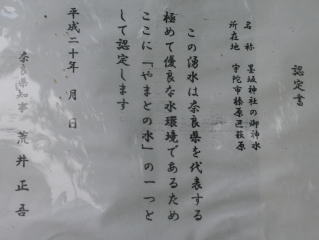 認定書
名称 墨坂神社の御神水
所在地 宇陀市榛原区萩原
この湧水は奈良県を代表する
極めて優良な水環境であるため
ここに「やまとの水」の一つと
して認定します
平成二十年 月 日
奈良県知事 荒井正吾